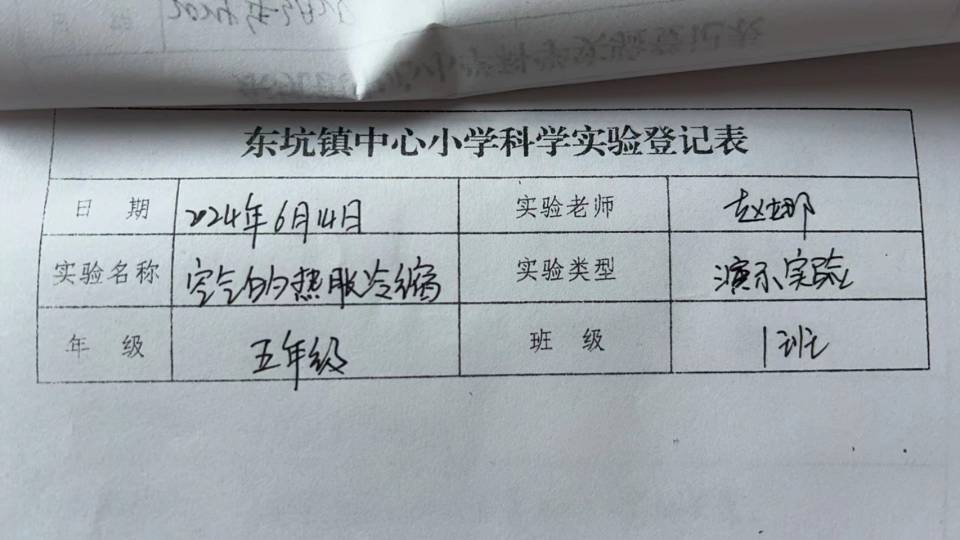 东坑镇中心小学科学实验登记表
日 期 2024年6月14日 实验老师 赵娜
实验名称 空气的热胀冷缩 实验类型 演示实验
年 级 五年级 班 级 1班